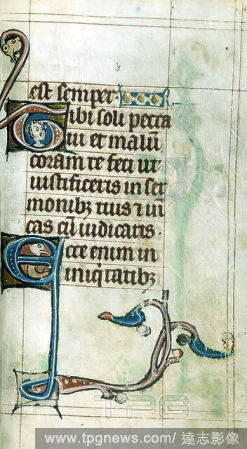 est semper.
Tibi soli pecca
ui et malū
coram te feci ut
iustificeris in ser
monibꝫ tuis ⁊ ui
cas cū iudicaris.
Ecce enim in
iniqͥtatibꝫ
TPG
www.tpgnews.com / 達志影像